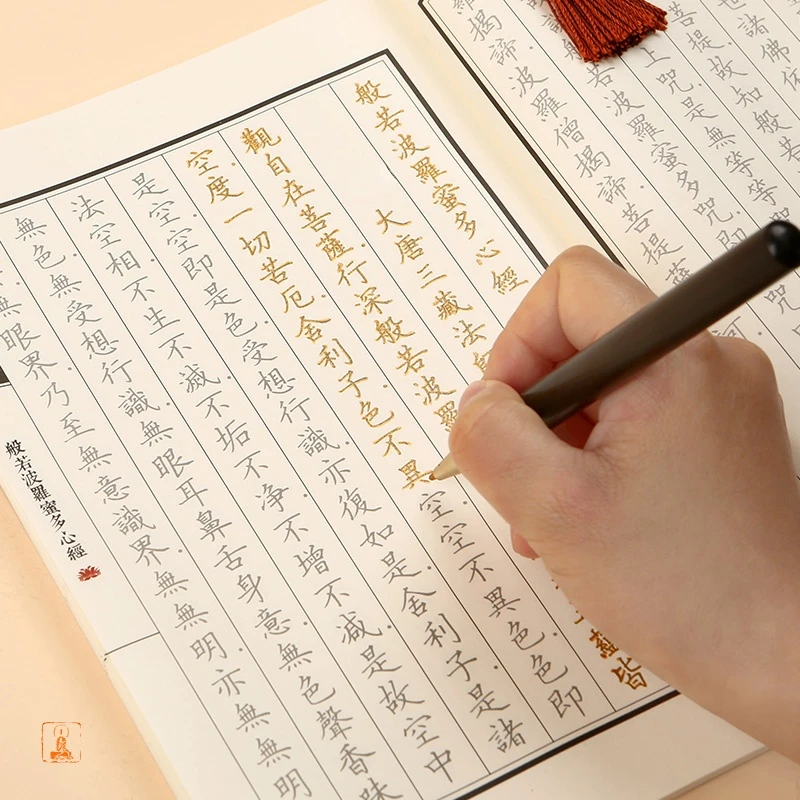 世諸佛依
菩提故知般若
上咒是無等等咒
若波羅蜜多咒即
羅揭諦波羅僧揭諦菩提薩
般若波羅蜜多心經
大唐三藏法
觀自在菩薩行深般若波羅蘊皆
空度一切苦厄舍利子色不異空空不異色色即
是空空即是色受想行識亦復如是舍利子是諸
法空相不生不滅不垢不净不增不減是故空中
無色無受想行識無眼耳鼻舌身意無色聲香味
無眼界乃至無意識界無無明亦無無明
般若波羅蜜多心經